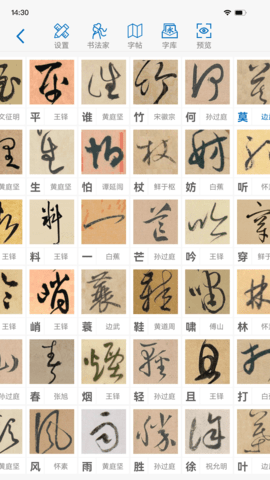 14:30
设置 书法家 字帖 字库 预览
文征明 平 王铎 谁 黄庭坚 竹 宋徽宗 何 孙过庭 莫 边
黄庭坚 生 黄庭坚 怕 谭延闿 杖 鲜于枢 妨 孙过庭 听 怀
王铎 料 王铎 一 白蕉 芒 孙过庭 吟 王铎 穿 鲜于
王铎 峭 王铎 蓑 边武 鞋 黄道周 啸 傅山 林 王铎
孙过庭 春 张旭 烟 王铎 轻 王铎 且 孙过庭 打 白蕉
黄庭坚 风 怀素 雨 黄庭坚 胜 孙过庭 徐 祝允明 叶